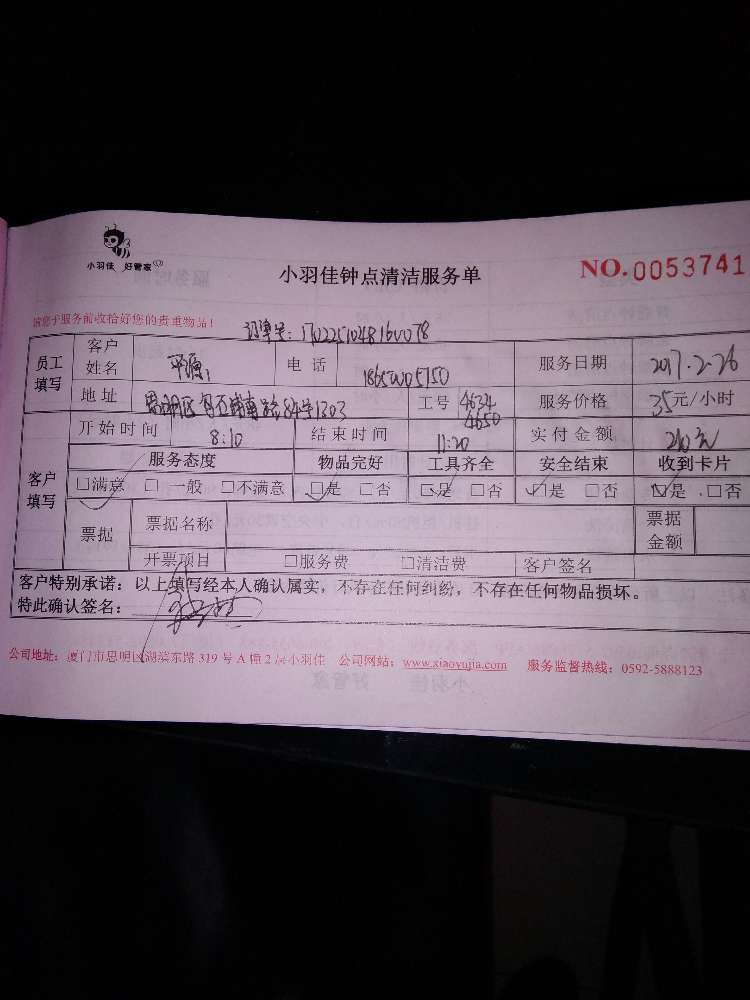 小羽佳 好管家
小羽佳钟点清洁服务单
NO.0053741
请您于服务前收拾好您的贵重物品!
订单号:
员工填写 客户姓名 电话 服务日期 2017.2-26
地址 84号1303 工号 4634 4650 服务价格 35元/小时
客户填写 开始时间 8:10 结束时间 11:20 实付金额 210元
服务态度 物品完好 工具齐全 安全结束 收到卡片
☑满意 □一般 □不满意 ☑是 □否 ☑是 □否 ☑是 □否 ☑是 □否
票据 票据名称 票据金额
开票项目 □服务费 □清洁费 客户签名
客户特别承诺:以上填写经本人确认属实,不存在任何纠纷,不存在任何物品损坏。
特此确认签名:
公司地址:厦门市思明区湖滨东路319号A幢2层小羽佳 公司网站:www.xiaoyujia.com 服务监督热线:0592-5888123